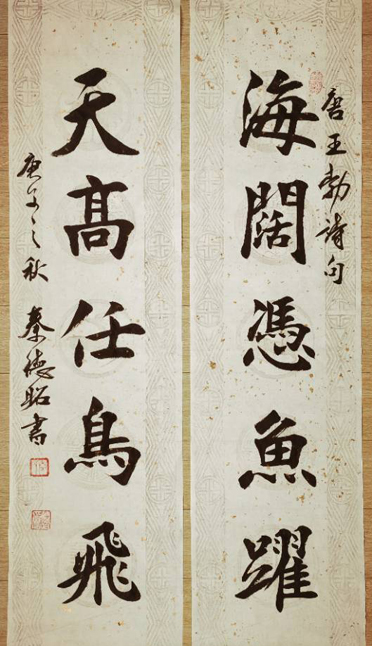 唐王勃詩句
海闊憑魚躍
天髙任鳥飛
庚之秋 秦德昭書